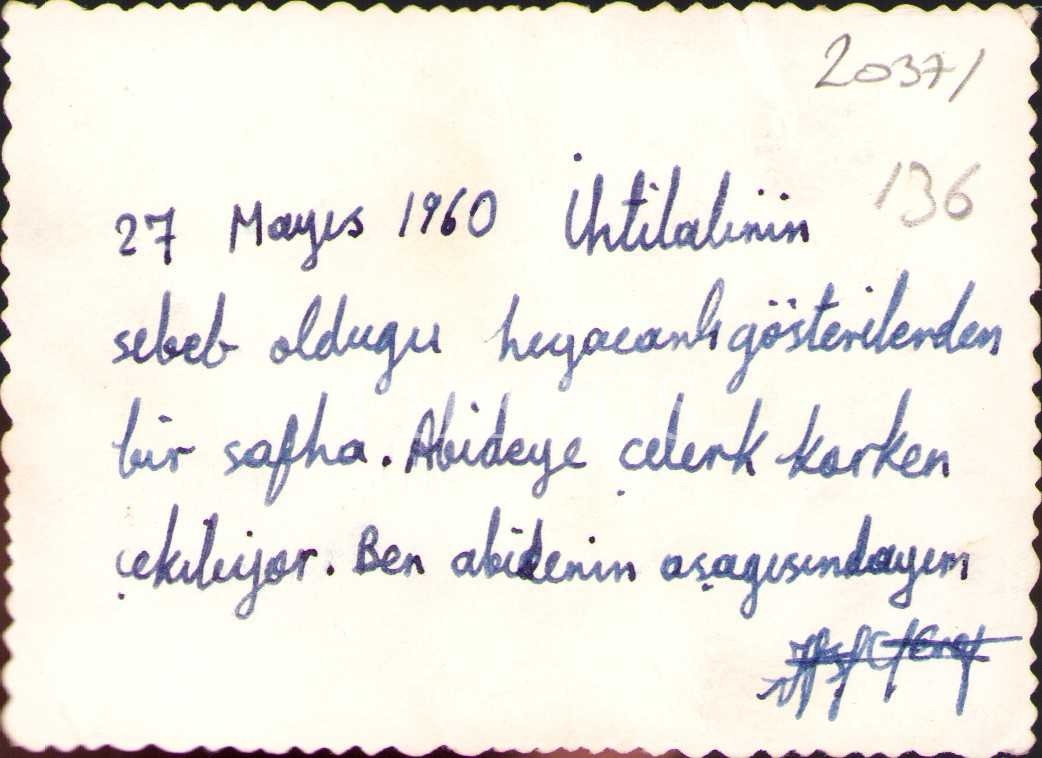 20371
136
27 Mayıs 1960 İhtilalinin
sebeb oldugu heyacanlı gösterilerden
bir safha. Abideye çelenk korken
çekiliyor. Ben abidenin aşagısındayım